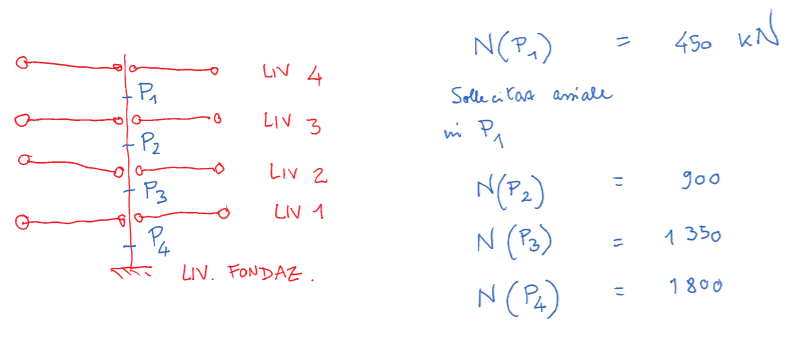 LIV 4
P1
LIV 3
P2
LIV 2
P3
LIV 1
P4
LIV. FONDAZ.
N(P1) = 450 kN
Sollecitaz assiale
in P1
N(P2) = 900
N(P3) = 1350
N(P4) = 1800